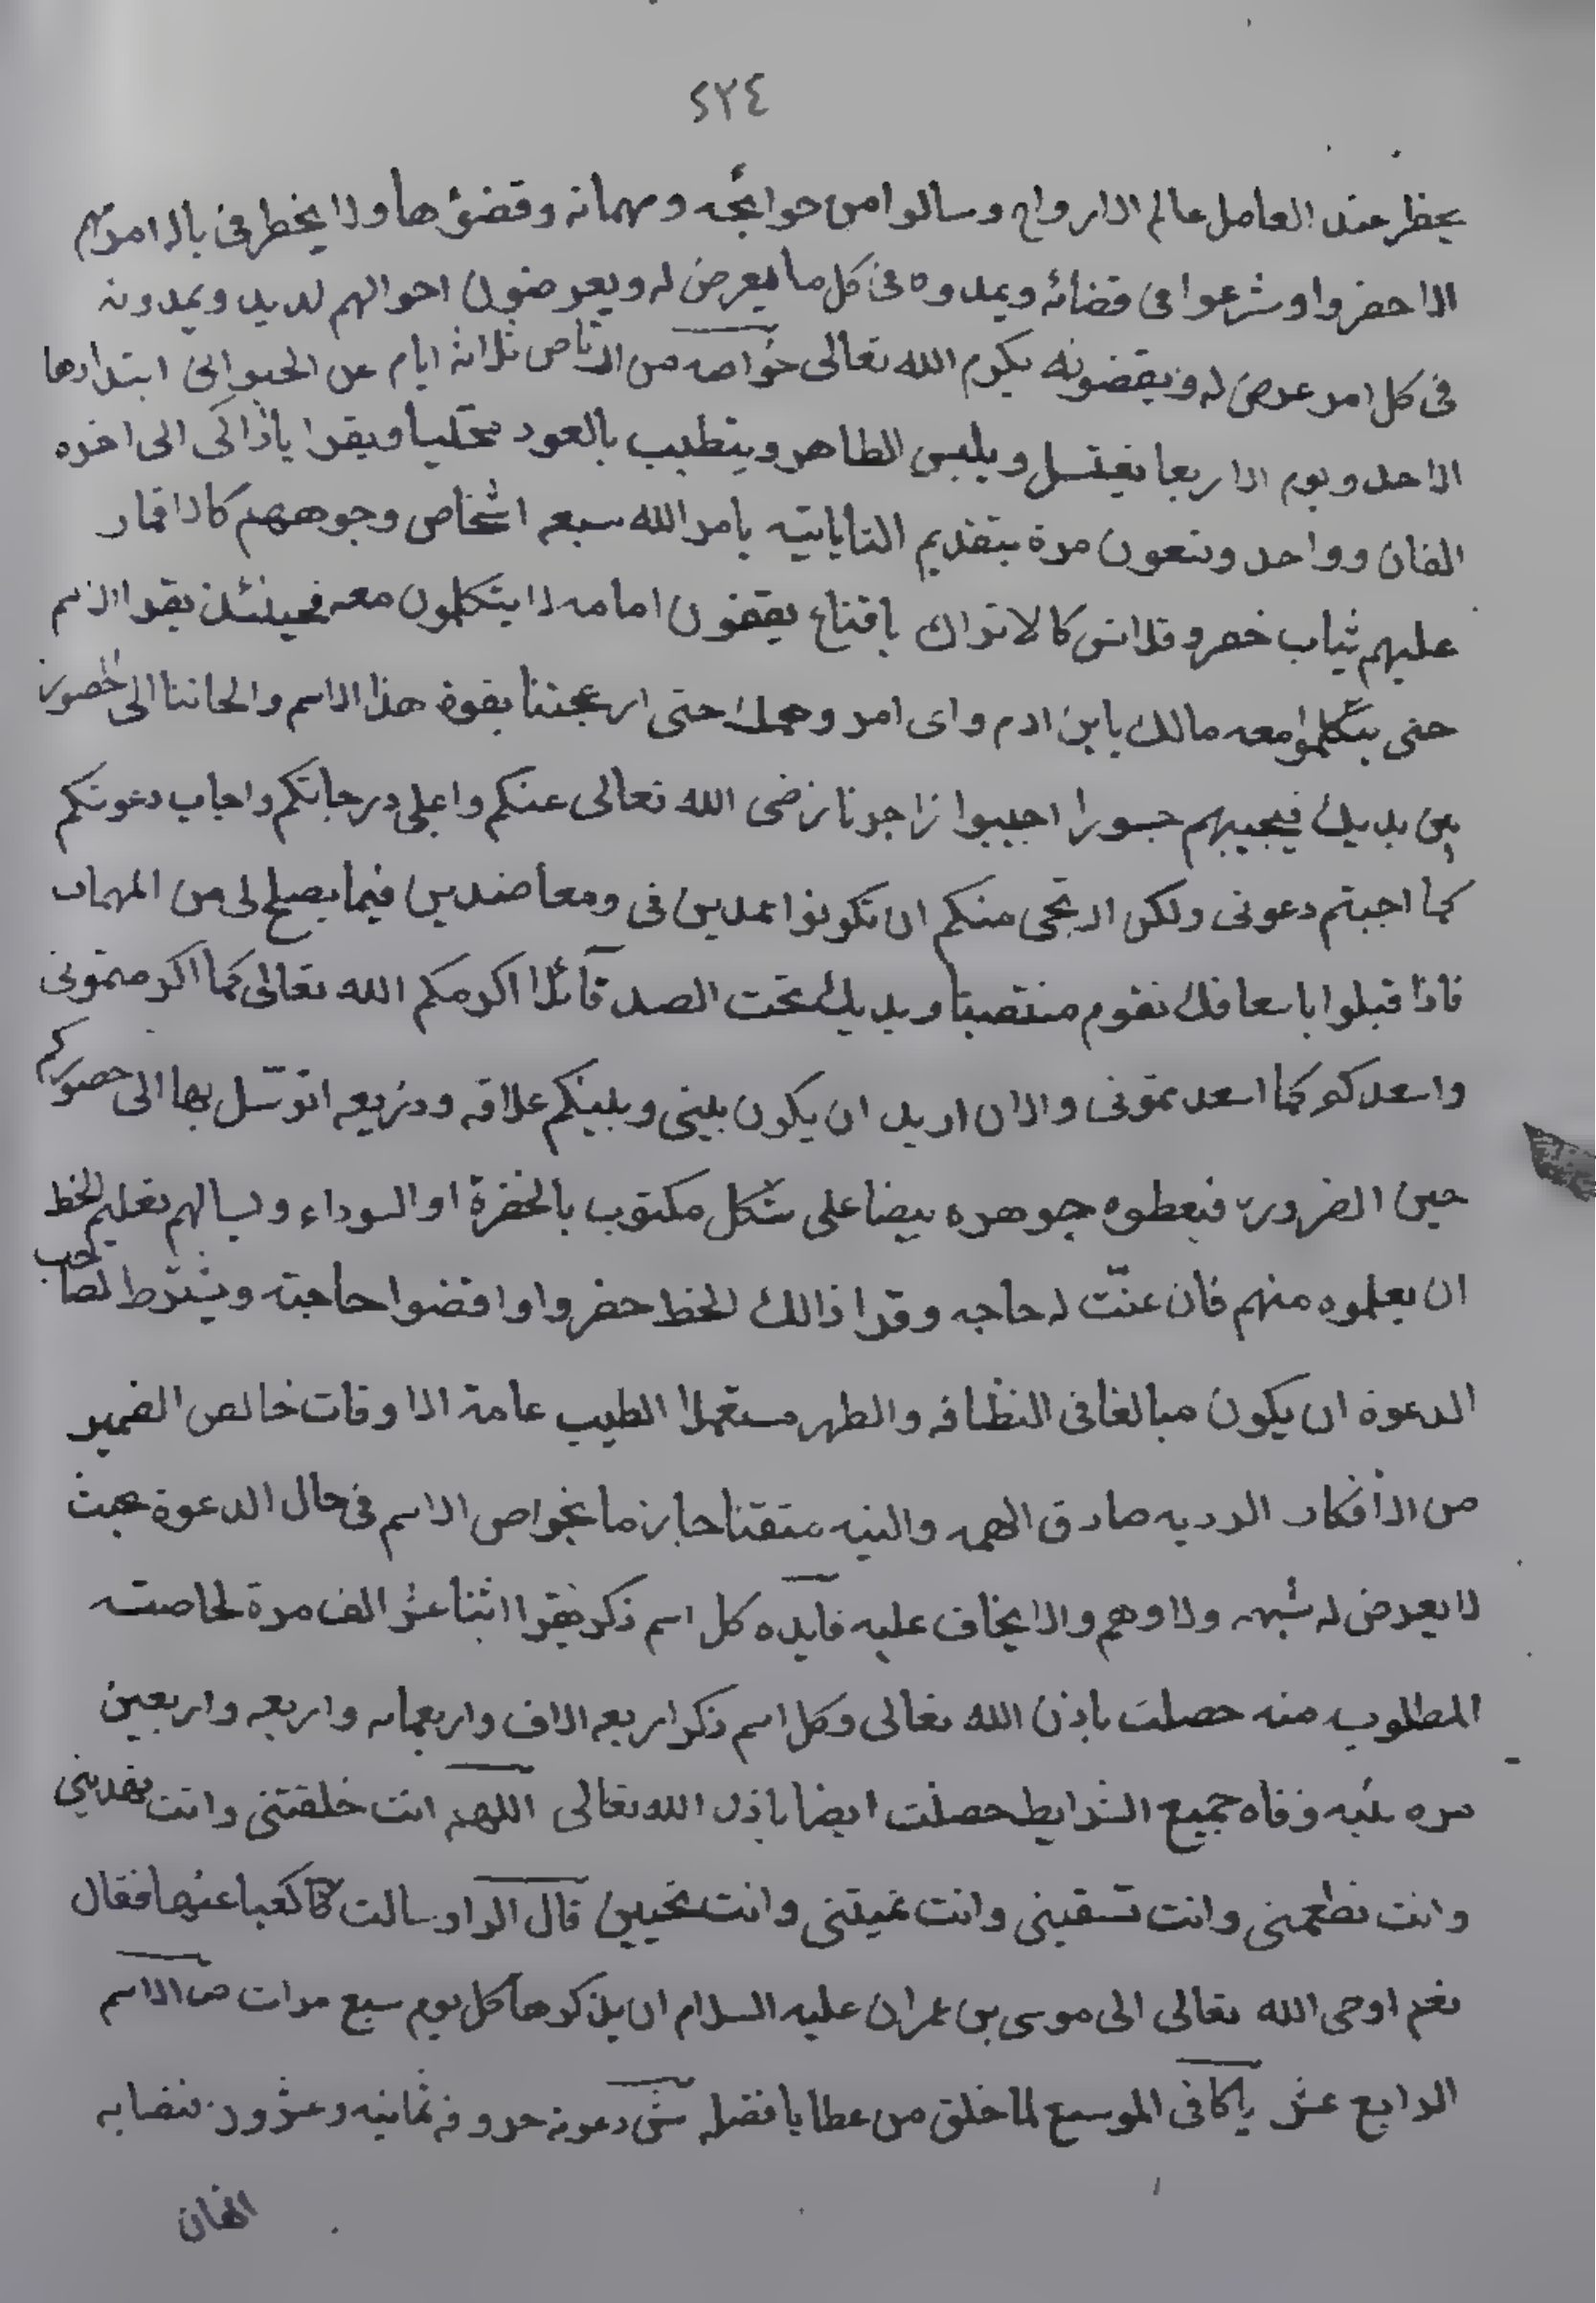 ٤٢٤
يحظر عند العامل عالم الارواح وسالوا من حوايجه ومهماته وقضؤها ولا يخطر فى باله امر مهم
الا حضروا وشرعوا فى قضائه ويمدوه فى كل ما يعرض له ويعرضون احوالهم لديه ويمدونه
فى كل امر عرض له ويقضونه يكرم الله تعالى خواصه من ارتاض ثلاثة ايام عن الحيوانى ابتداءها
الاحد ويوم الاربعا يغتسل ويلبس الطاهر ويتطيب بالعود مختليا ويقرا ياذاكى الى اخره
الفان وواحد وتسعون مرة بتقديم الثابتيه يامر الله سبعه اشخاص وجوههم كالاقمار
عليهم ثياب خضر وقلانس كالاتراك باقناع يقفون امامه لا يتكلمون معه فحينئذ يقرا الاسم
حتى يتكلموا معه مالك يا ابن ادم واى امر وحملك حتى ازعجتنا بقوة هذا الاسم والجاتنا الى الحضور
بين يديك فيجيبهم جسورا اجيبوا زاجرنا رضى الله تعالى عنكم واعلى درجاتكم واجاب دعوتكم
كما اجبتم دعوتى ولكن ارتجى منكم ان تكونوا ممدين فى ومعاضدين فيما يصلح لى من المهمات
فاذا قبلوا باسعافك تقوم منتصبا ويديك تحت الصدر قآئلا اكرمكم الله تعالى كما اكرمتمونى
واسعدكم كما اسعدتمونى والان اريد ان يكون بينى وبينكم علاقه وذريعه اتوسّل بها الى حضوركم
حين الضرورة فيعطوه جوهره بيضا على شكل مكتوب بالخضرة او السوداء ويسالهم تعليم الخط
ان يعلموه منهم فان عنّت له حاجه وقرا ذالك الخط حضروا واقضوا حاجته ويشترط لصاحب
الدعوة ان يكون مبالغا فى النظافه والطهر مستعملا الطيب عامة الاوقات خالص الضمير
من الافكار الرديه صادق الهمه والنيه متقنا جازما بخواص الاسم فى حال الدعوة بحيث
لا يعرض له شبهه ولا وهم ولا يخاف عليه فايده كل اسم ذكر فيقرا اثنا عشر الف مرة لخاصته
المطلوب منه حصلت باذن الله تعالى وكل اسم ذكر اربعه الاف واربعمايه واربعه واربعين
مره وفاه جميع الشرايط حصلت ايضا باذن الله تعالى اللهم انت خلقتنى وانت تهدينى
وانت تطعمنى وانت تسقينى وانت تميتنى وانت تحيينى قال الراو سالت كعبا عنها فقال
نعم اوحى الله تعالى الى موسى بن عمران عليه السلام ان يذكرها كل يوم سبع مرات ص الاسم
الرابع عشر ياكافى الموسع لما خلق من عطايا فضله دعوة حروفه ثمانيه وعشرون نصابه
الفان